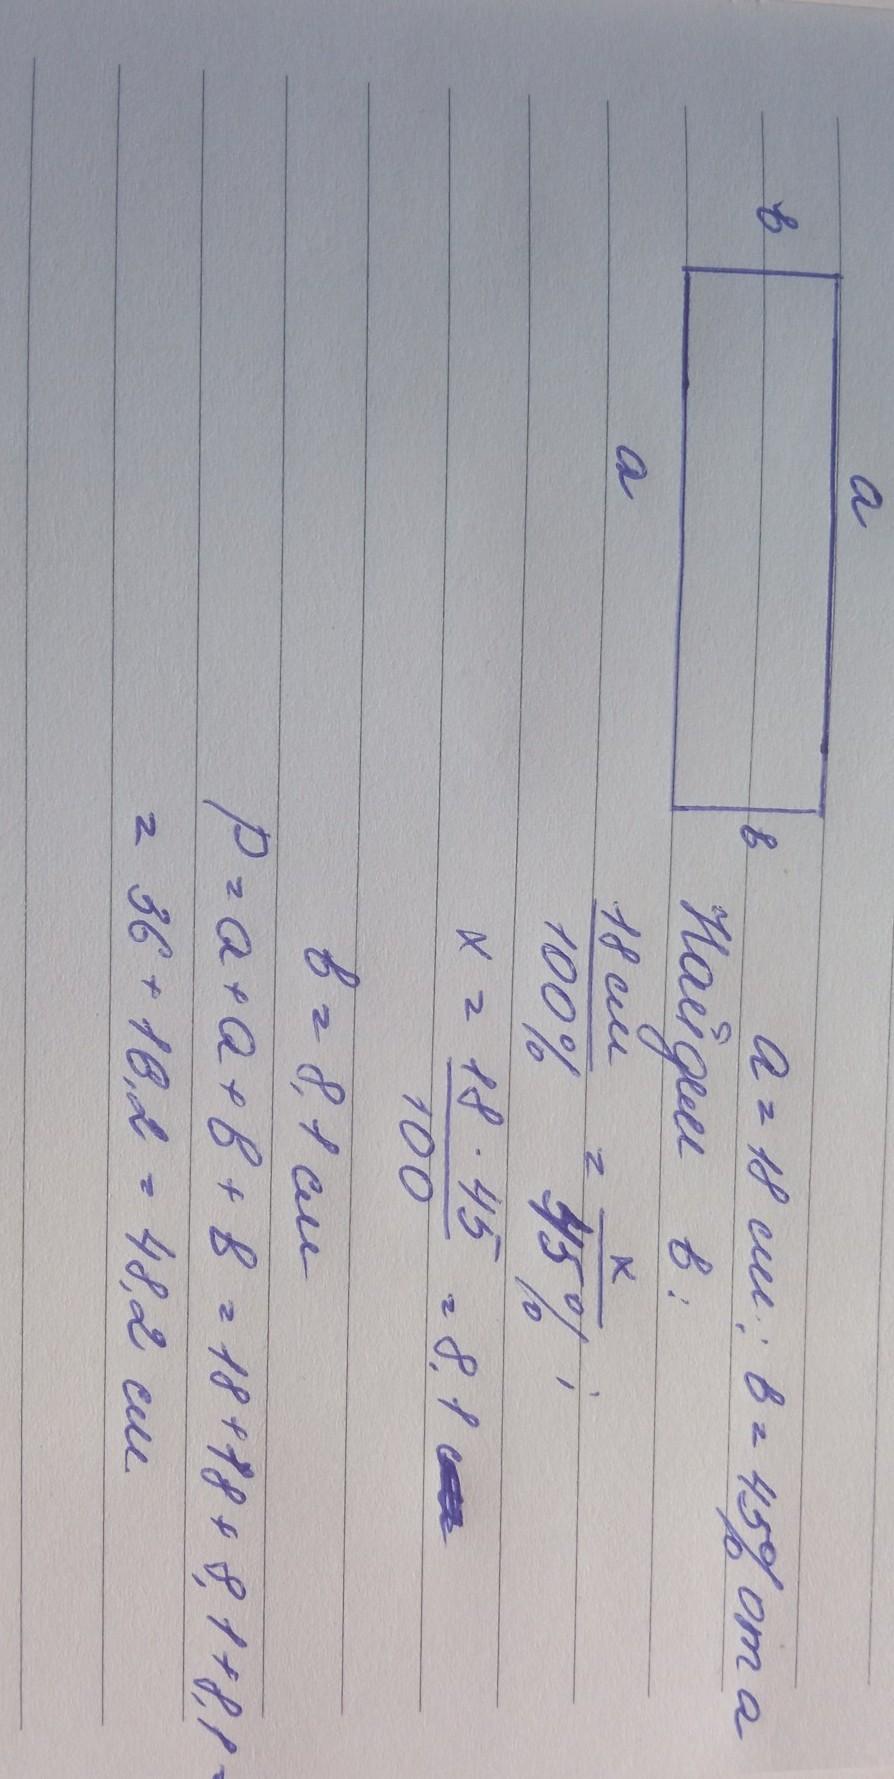 a
в
в
a
a = 18 см; в = 45% от a
Найдем в:
18 см / 100% = x / 45% ;
x = 18 · 45 / 100 = 8,1
в = 8,1 см
P = a + a + в + в = 18 + 18 + 8,1 + 8,1 =
= 36 + 16,2 = 48,2 см.